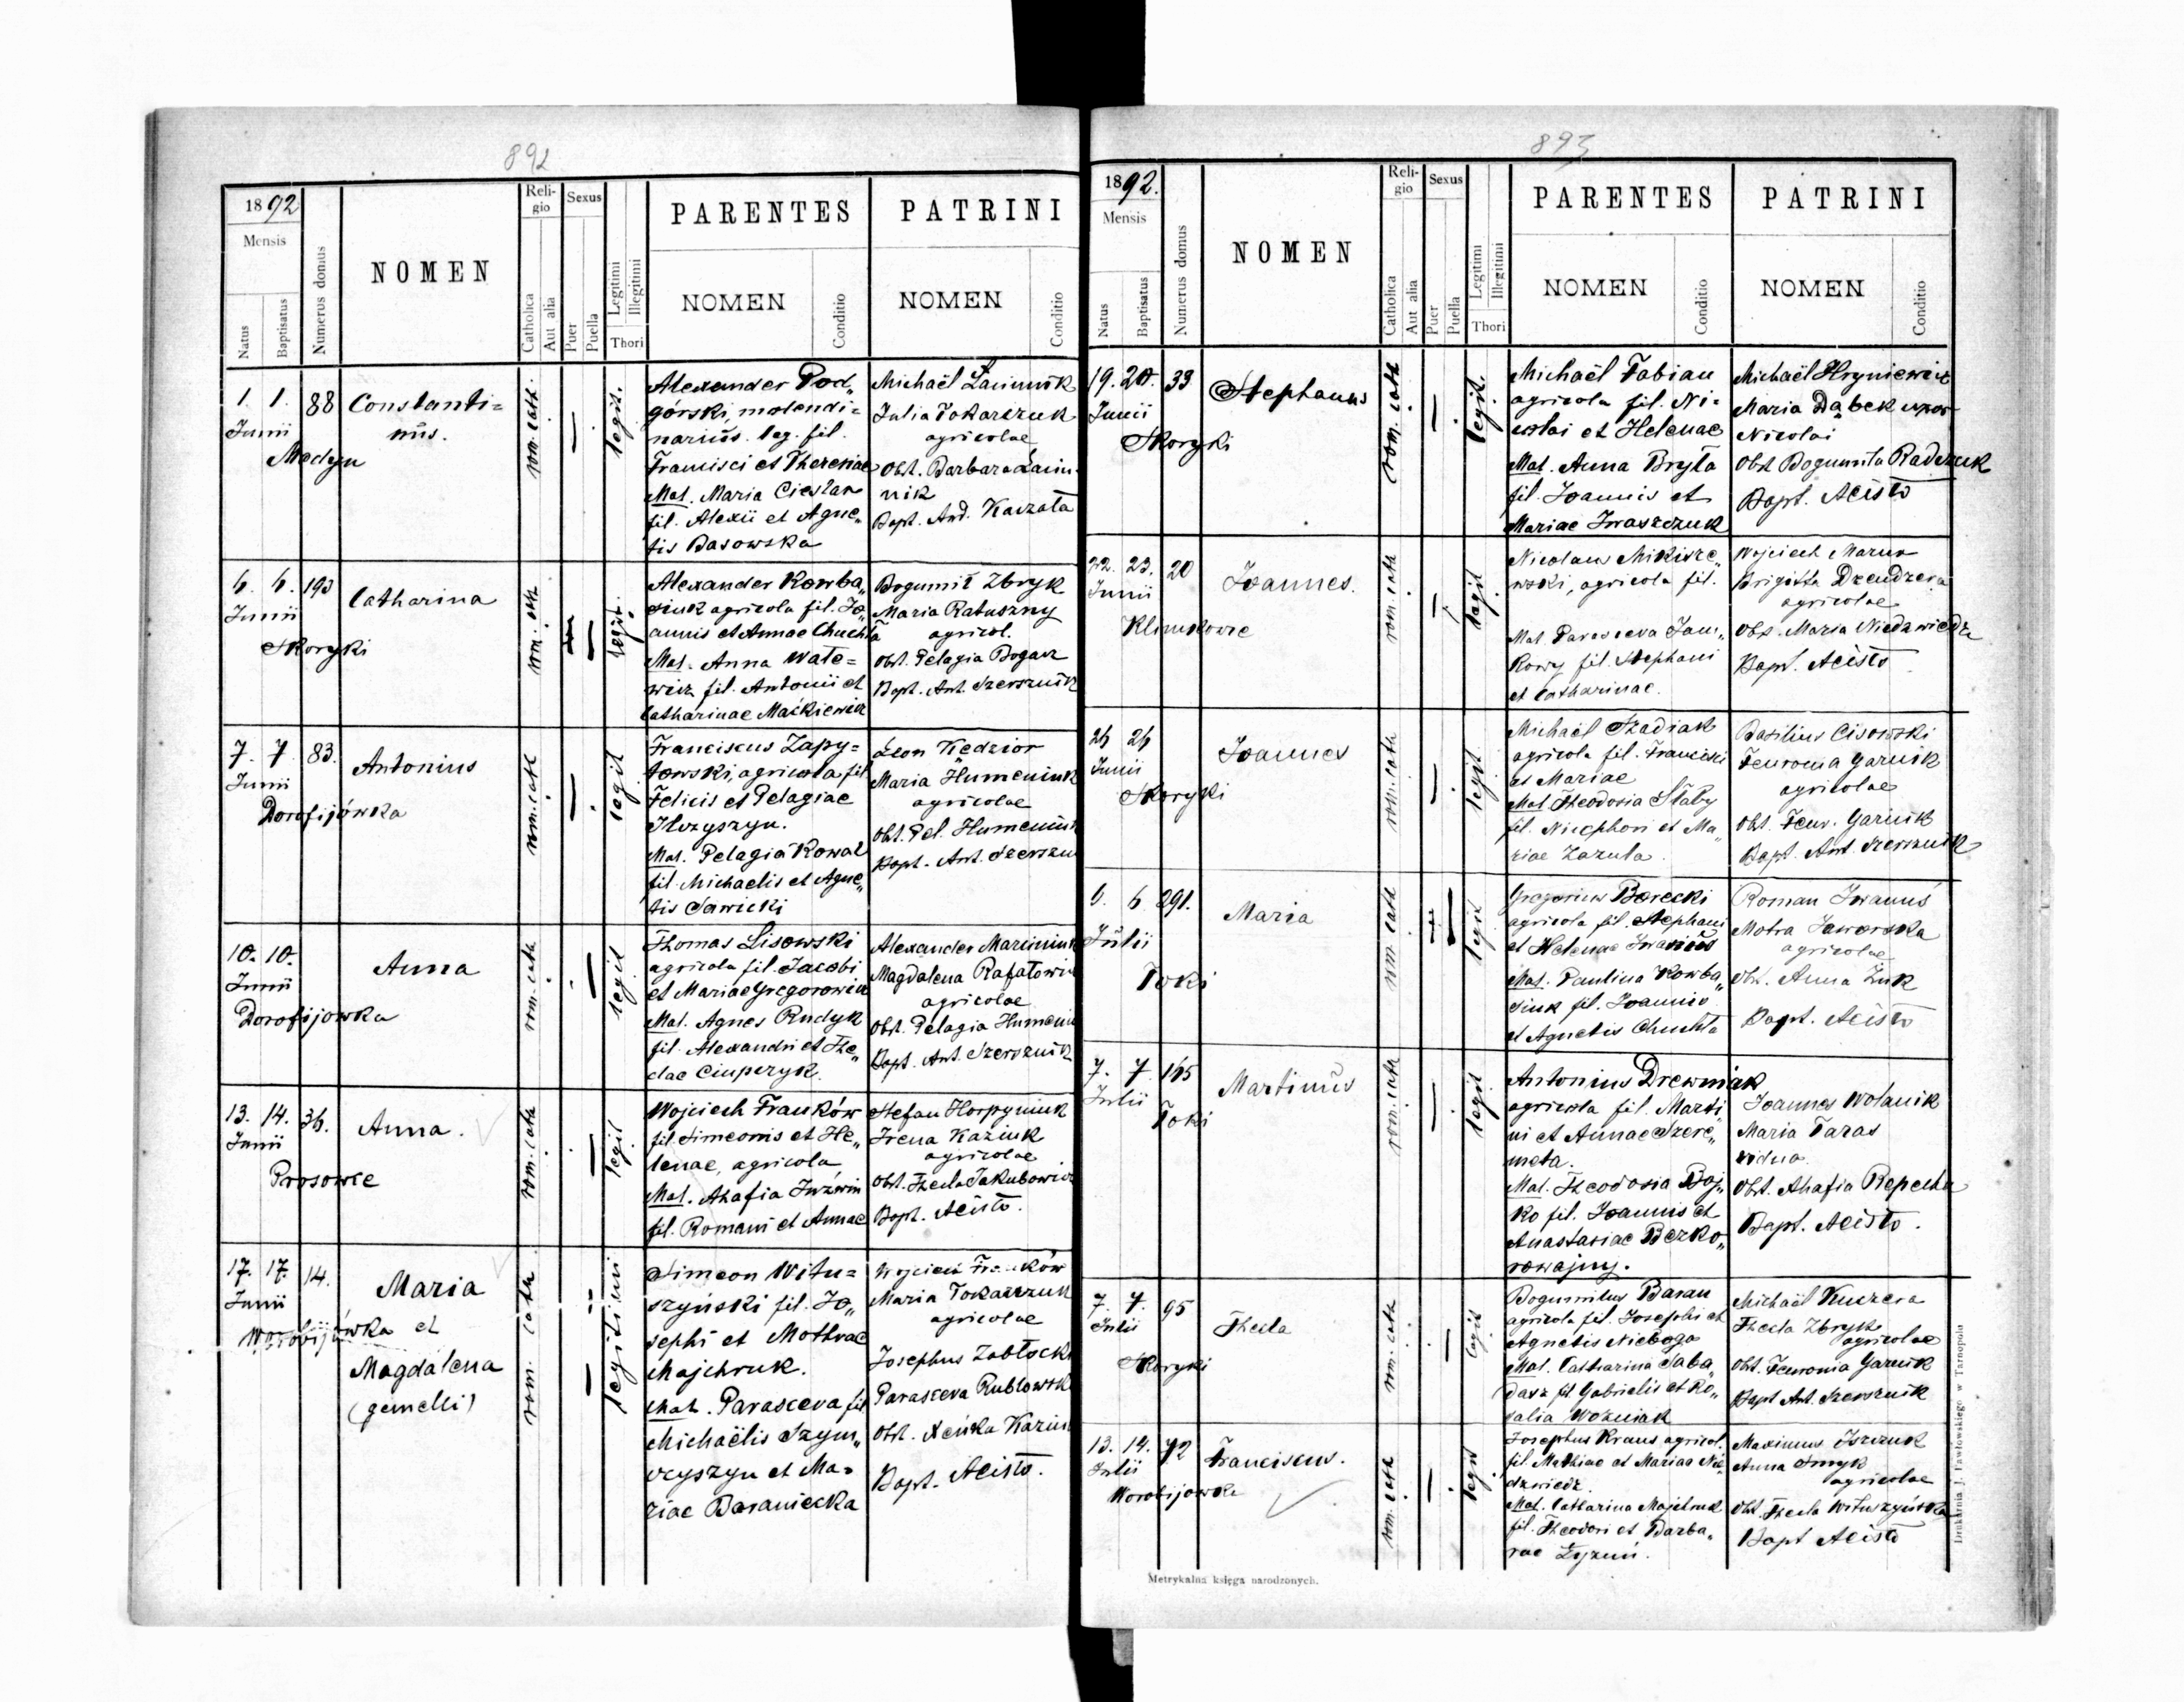 892
1892
Mensis
Natus
Baptisatus
Numerus domus
NOMEN
Religio
Catholica
Aut alia
Sexus
Puer
Puella
Legitimi
Illegitimi
Thori
PARENTES
NOMEN
Conditio
PATRINI
NOMEN
Conditio
1. 1. 88
Junii
Medyn
Constanti=
nus.
rom. cath.
legit.
Alexander Pod„
górski, molendi=
narius. leg. fil.
Francisci et Theresiae
Mat. Maria Cieslar
fil. Alexii et Agne„
tis Basowska
Michaël Łacinnik
Julia Tokarczuk
agricolae
Obst. Barbara Łacin
nik
Bapt. And. Karzała
6. 6. 193
Junii
Skoryki
Catharina
rom. cath
legit.
Alexander Kowba„
siuk agricola fil. Jo„
annis et Annae Chuchła
Mat. Anna Wale=
wicz fil. Antonii et
Catharinae Maćkiewicz
Bogumił Zbryk
Maria Ratuszny
agricol.
Obst. Pelagia Bogacz
Bapt. Ant. Szersznik
7. 7. 83.
Junii
Dorofijówka
Antonius
rom. cath
legit
Franciscus Zapy=
towski, agricola, fil
Felicis et Pelagiae
Ilczyszyn.
Mat. Pelagia Kowal
fil. Michaelis et Agne„
tis Sawicki
Leon Kędzior
Maria Humeniuk
agricolae
Obst. Pel. Humeniuk
Bapt. Ant. Szerszn
10. 10.
Junii
Dorofijowka
Anna
rom. cath
legit
Thomas Lisowski
agricola fil. Jacobi
et Mariae Gregorowicz
Mat. Agnes Rudyk
fil. Alexandri et The„
clae Ciupczyk.
Alexander Marciniuk
Magdalena Rafałowi
agricolae
Obst. Pelagia Humeni
Bapt. Ant. Szersznik
13. 14. 36.
Junii
Prosowce
Anna.
rom. cath
legit
Wojciech Franków
fil. Simeonis et He„
lenae, agricola
Mat. Ahafia Juźwin
fil. Romani et Annae
Stefan Horpyniuk
Irena Kaziuk
agricolae
Obst. Thecla Jakubowicz
Bapt. Acisto.
17. 17. 14.
Junii
Worobijówka et
Maria
Magdalena
(gemelli)
rom. cath
legitimi
Simeon Witu=
szyński fil. Jo„
sephi et Mothrae
Majchruk.
Mat. Parasceva fil
Michaëlis Szym„
czyszyn et Ma=
riae Baraniecka
Wojciech Franków
Maria Tokarczuk
agricolae
Josephus Zabłocki
Parasceva Rublowsk
Obst. Xeńka Kaziu
Bapt. Acisto.
893
1892.
Mensis
Natus
Baptisatus
Numerus domus
NOMEN
Religio
Catholica
Aut alia
Sexus
Puer
Puella
Legitimi
Illegitimi
Thori
PARENTES
NOMEN
Conditio
PATRINI
NOMEN
Conditio
19. 20. 33
Junii
Skoryki
Stephanus
rom. cath
legit.
Michaël Fabian
agricola fil. Ni=
colai et Helenae
Mat. Anna Bryła
fil. Joannis et
Mariae Iwaszczuk
Michaël Hryniewicz
Maria Dąbek uxor
Nicolai
Obst Bogumila Radczuk
Bapt. Acisto
22. 23. 20
Junii
Klimkowce
Joannes.
rom. cath
legit
Nicolaus Mikisze„
wski, agricola fil.
Mat. Parasceva Jam„
kowy fil. Stephani
et Catharinae.
Wojciech Maruo
Brigitta Dzendzera
agricolae
Obst. Maria Niedzwiedz
Bapt. Acisto
26 26
Junii
Skoryki
Joannes
rom. cath
legit
Michaël Szadiak
agricola fil. Francisci
et Mariae
Mat Theodosia Słaby
fil. Nicephori et Ma„
riae Zazula.
Basilius Cisowski
Feuronia Garnik
agricolae
Obst. Feur. Garnik
Bapt. Ant. Szersznik
6. 6 291.
Julii
Toki
Maria
rom. cath
legit
Gregorius Borecki
agricola fil. Stephani
et Helenae Iwaniów
Mat. Paulina Kowba„
siuk fil. Joannis
et Agnetis Chuchła
Roman Iwanus
Motra Jaworska
agricolae
Obst. Anna Żuk
Bapt. Acisto
7. 7 165
Julii
Toki
Martinus
rom. cath
legit
Antonius Drewniak
agricola fil. Marti
ni et Annae Szere„
meta.
Mat. Theodosia Boj„
ko fil. Joannis et
Anastasiae Bezko„
rowajny.
Joannes Wolanik
Maria Taras
vidua
Obst. Ahafia Repecha
Bapt. Acisto.
7. 7. 95
Julii
Skoryki
Thecla
rom. cath
legit
Bogumilus Baran
agricola fil. Josephi et
Agnetis Nieboga
Mat. Catharina Saba„
darz fil. Gabrielis et Ro„
salia Wozniak
Michaël Kuczera
Thecla Zbryk
agricolae
Obt. Feuronia Garnik
Bapt Ant. Szersznik
13. 14. 72
Julii
Worobijowka
Franciscus.
rom. cath
legit
Josephus Kraus agricol.
fil Mathiae et Mariae Nie„
dzwiedz.
Mat. Catharina Majchruk
fil. Theodori et Barba„
rae Łyzun.
Maximus Iszczuk
Anna Smyk
agricolae
Obst. Thecla Wituszyńska
Bapt Acisto
Metrykalna księga narodzonych.
Drukarnia J. Pawłowskiego w Tarnopolu